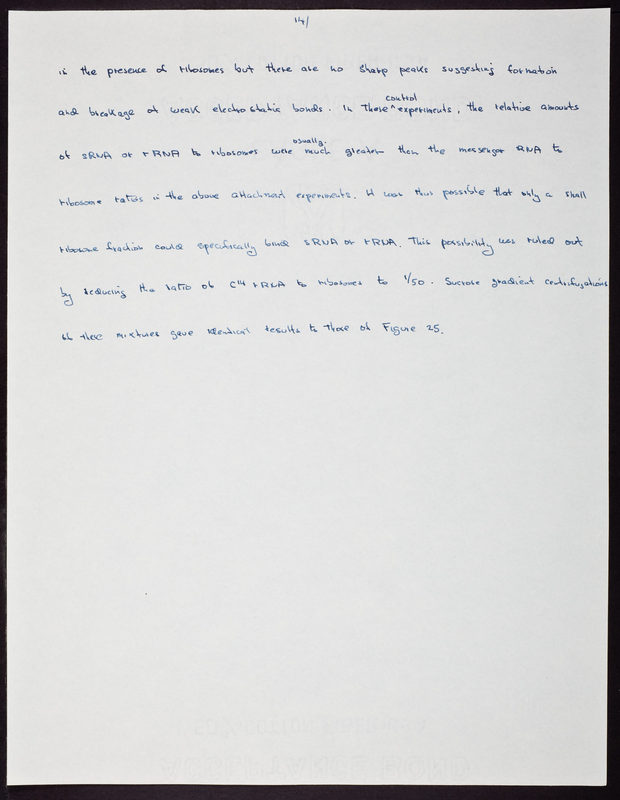 14/
is the presence of ribosomes but there are no sharp peaks suggesting formation
and breakage of weak electrostatic bonds. In these ^ control experiments, the relative amounts
of sRNA or rRNA to ribosomes were usually much greater than the messenger RNA to
ribosome ratios in the above attachment experiments. It was thus possible that only a small
ribosome fraction could specifically bind sRNA or rRNA. This possibility was ruled out
by reducing the ratio of C14 rRNA to ribosomes to 1/50. Sucrose gradient centrifugations
of these mixtures gave identical results to those of Figure 25.
50% COTTON FIBER
ACCEPTANCE BOND